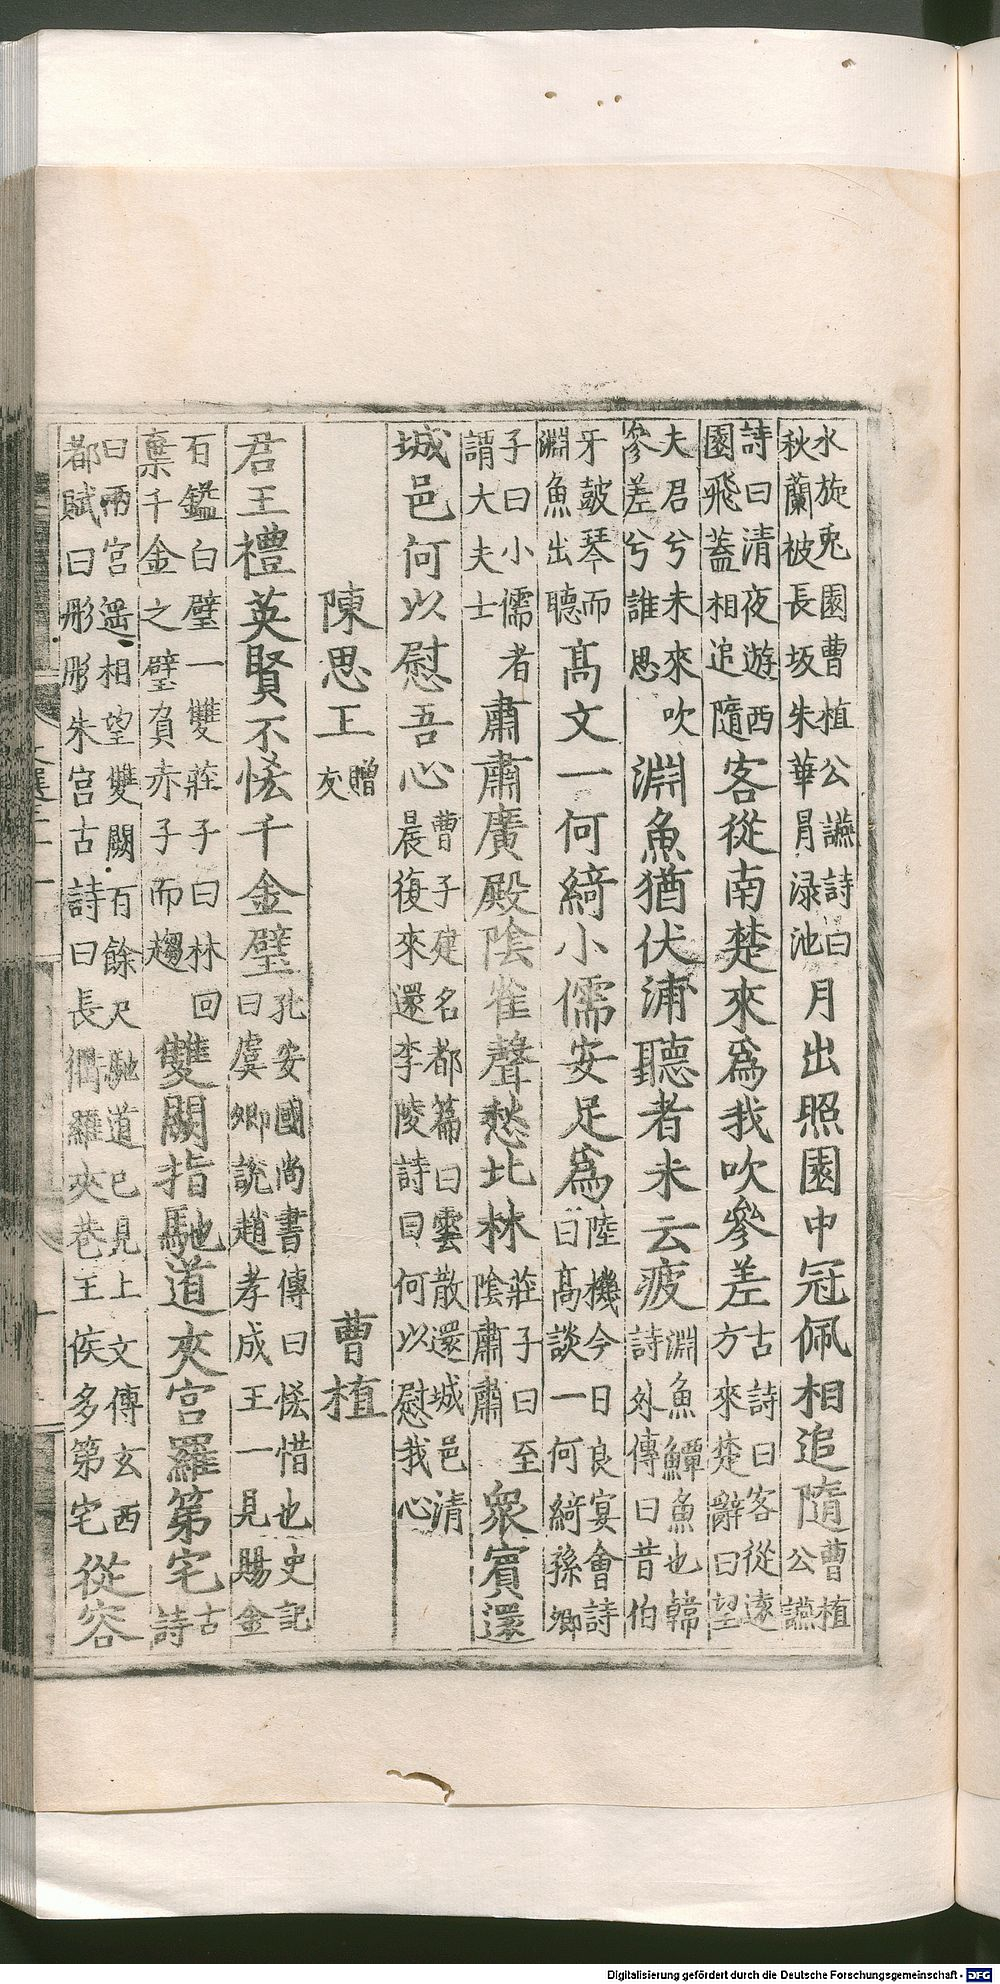 水旋兎園曹植公讌詩曰
秋蘭被長坂朱華冒渌池
月出照園中冠佩相追隨
曹植
公讌
詩曰清夜遊西
園飛蓋相追隨
客從南楚來爲我吹參差
古詩曰客從逺
方來楚辭曰望
夫君兮未來吹
參差兮誰思
淵魚猶伏浦聽者未云疲
淵魚鱏魚也韓
詩外傳曰昔伯
牙皷琴而
淵魚出聽
髙文一何綺小儒安足爲
陸機今日良宴會詩
曰髙談一何綺孫卿
子曰小儒者
謂大夫士
肅肅廣殿陰雀聲愁北林
莊子曰至
陰肅肅
衆賓還
城邑何以慰吾心
曹子建名都篇曰雲散還城邑清
晨復來還李陵詩曰何以慰我心
陳思王
贈
友
曹植
君王禮英賢不恡千金璧
孔安國尚書傳曰恡惜也史記
曰虞卿說趙孝成王一見賜金
石鎰白璧一雙莊子曰林回
棄千金之璧負赤子而趨
雙闕指馳道夾宮羅第宅
古
詩
曰兩宮遥相望雙闕百餘尺馳道已見上文傅玄西
都賦曰彤彤朱宮古詩曰長衢羅夾巷王侯多第宅
從容
Digitalisierung gefördert durch die Deutsche Forschungsgemeinschaft - DFG